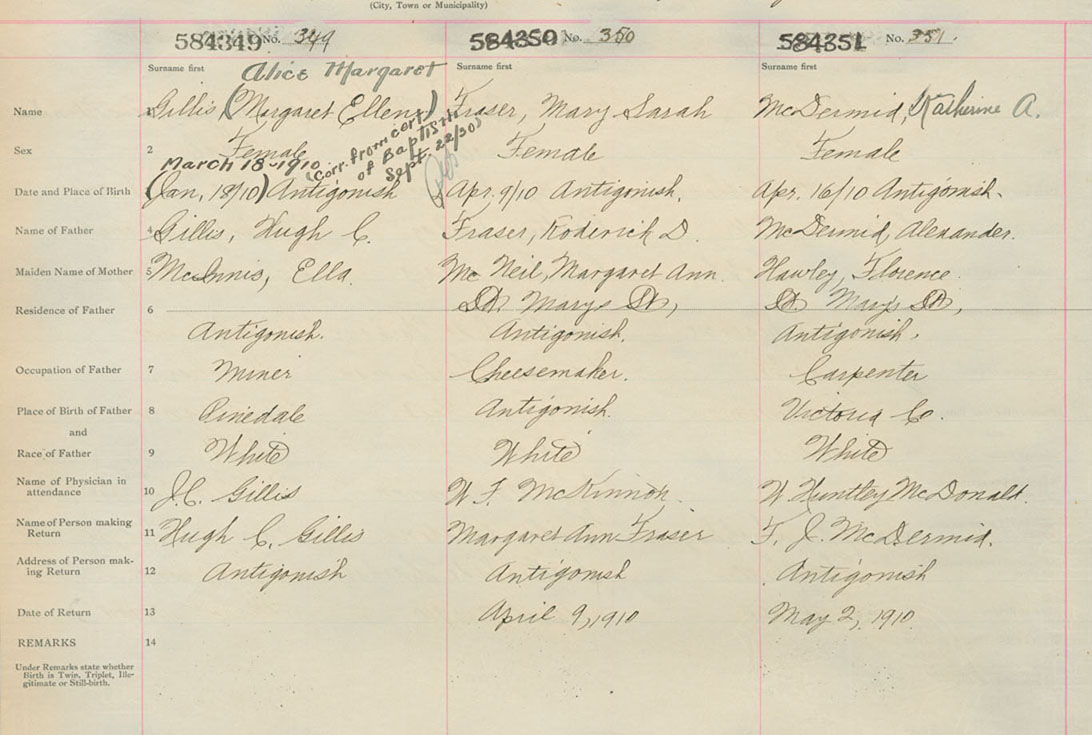 (City, Town or Municipality)
584349 No. 349 584350 No. 350 584351 No. 351.
Surname first Surname first Surname first
Alice Margaret
Name 1 Gillis (Margaret Ellen) Fraser, Mary Sarah McDermid, Katherine A.
Sex 2 Female Female Female
March 18-1910 (Corr. from cert of Baptism Sept. 22/30)
Date and Place of Birth (Jan, 18/10) Antigonish Apr. 9/10 Antigonish. Apr. 16/10 Antigonish.
Name of Father 4 Gillis, Hugh C. Fraser, Roderick D. McDermid, Alexander.
Maiden Name of Mother 5 McInnis, Ella. McNeil, Margaret Ann. Hawley, Florence.
St. Marys St, St. Marys St,
Residence of Father 6 Antigonish. Antigonish. Antigonish.
Occupation of Father 7 Miner Cheesemaker. Carpenter
Place of Birth of Father 8 Pinedale Antigonish. Victoria Co.
and
Race of Father 9 White White White
Name of Physician in
attendance 10 J.C. Gillis W F. McKinnon. W Huntley McDonald.
Name of Person making
Return 11 Hugh C. Gillis Margaret Ann Fraser F. J. McDermid.
Address of Person mak-
ing Return 12 Antigonish Antigonish Antigonish
Date of Return 13 April 9, 1910 May 2, 1910
REMARKS 14
Under Remarks state whether
Birth is Twin, Triplet, Ille-
gitimate or Still-birth.